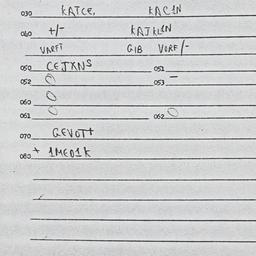 030 KATCE, KACIN
040 +/- KAJKLIN
VARFT GIB VORF/-
050 CEJXNS 051
052 O 053 -
060 O
061 O 062 O
070 GEVOTT
080 + 1MED1K